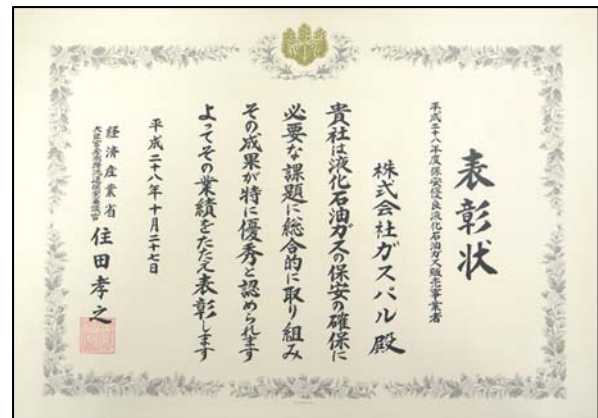 表彰状
平成二十八年度保安優良液化石油ガス販売事業者
株式会社ガスパル 殿
貴社は液化石油ガスの保安の確保に
必要な課題に総合的に取り組み
その成果が特に優秀と認められます
よってその業績をたたえ表彰します
平成二十八年十月二十七日
経済産業省
住田孝之